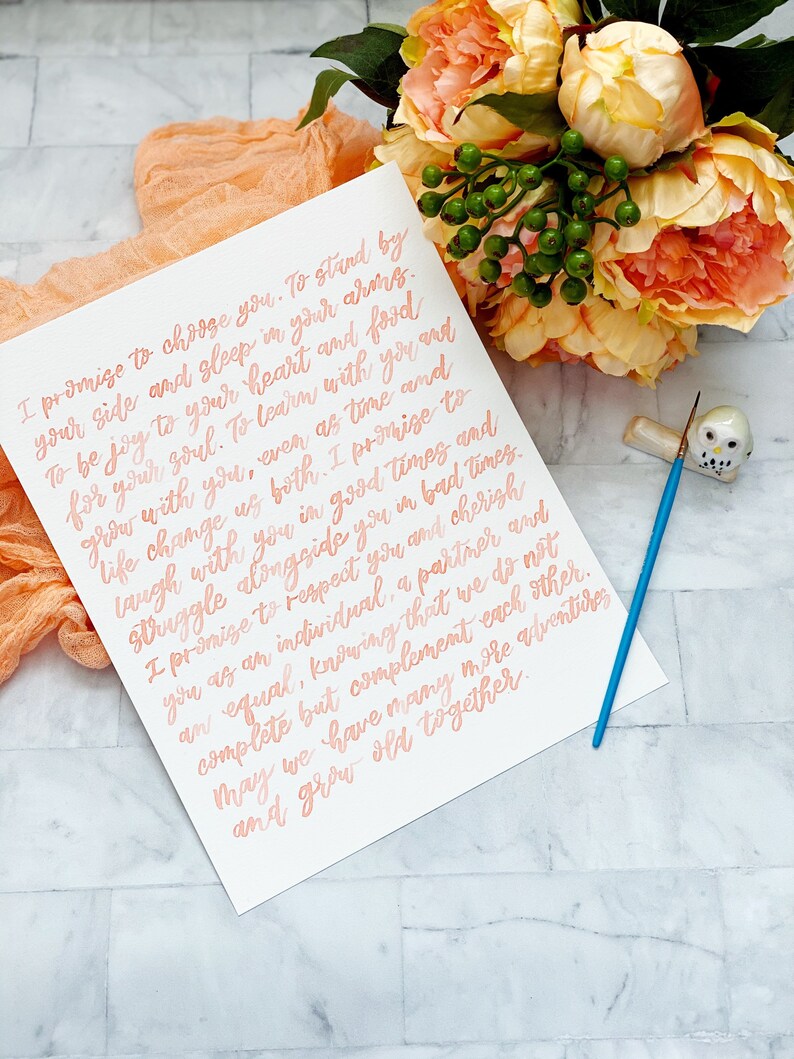 I promise to choose you. To stand by
your side and sleep in your arms.
To be joy to your heart and food
for your soul. To learn with you and
grow with you, even as time and
life change us both. I promise to
laugh with you in good times and
struggle alongside you in bad times.
I promise to respect you and cherish
you as an individual, a partner and
an equal, knowing that we do not
complete but complement each other.
May we have many more adventures
and grow old together.